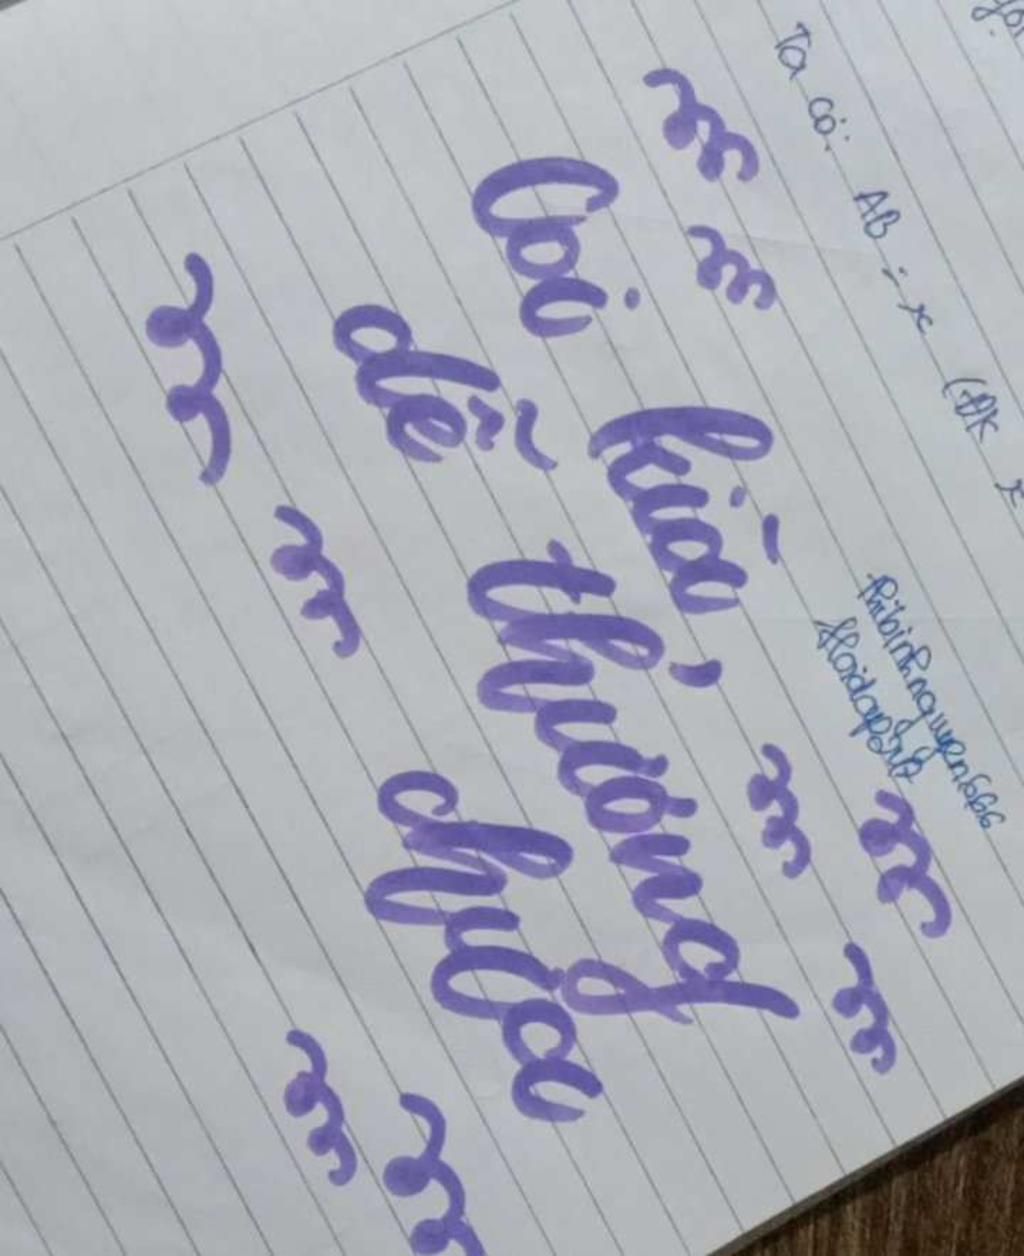 Ta có: AB = x (ĐK x
thibinhnguyen666
Hoidap247
Coi kìa,
dễ thương
chưa